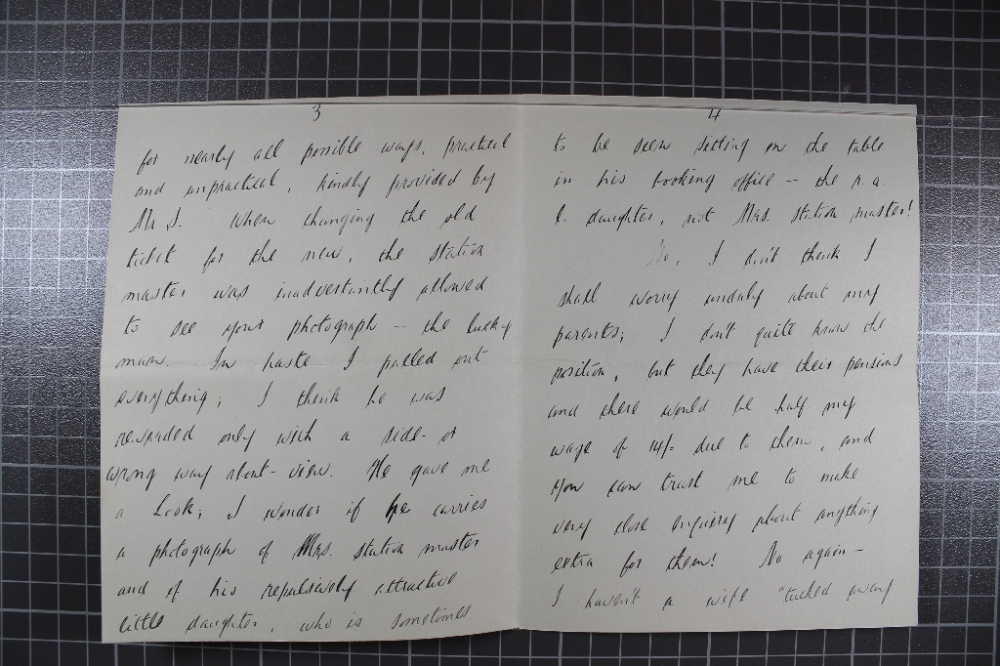 3
for nearly all possible ways, practical
and unpractical, kindly provided by
Mr S. When changing the old
ticket for the new, the station
master was inadvertently allowed
to see your photograph -- the lucky
man. In haste I pulled out
everything; I think he was
rewarded only with a side- or
wrong way about- view. He gave me
a look; I wonder if he carries
a photograph of Mrs. station master
and of his repulsively attractive
little daughter, who is sometimes
4
to be seen sitting on the table
in his booking office -- the r. a.
l. daughter, not Mrs. Station master!
No, I don't think I
shall worry unduly about my
parents; I don't quite know the
position, but they have their pensions
and there would be half my
wage of 14/- due to them, and
you can trust me to make
very close enquiry about anything
extra for them! No again -
I haven't a wife "tucked away